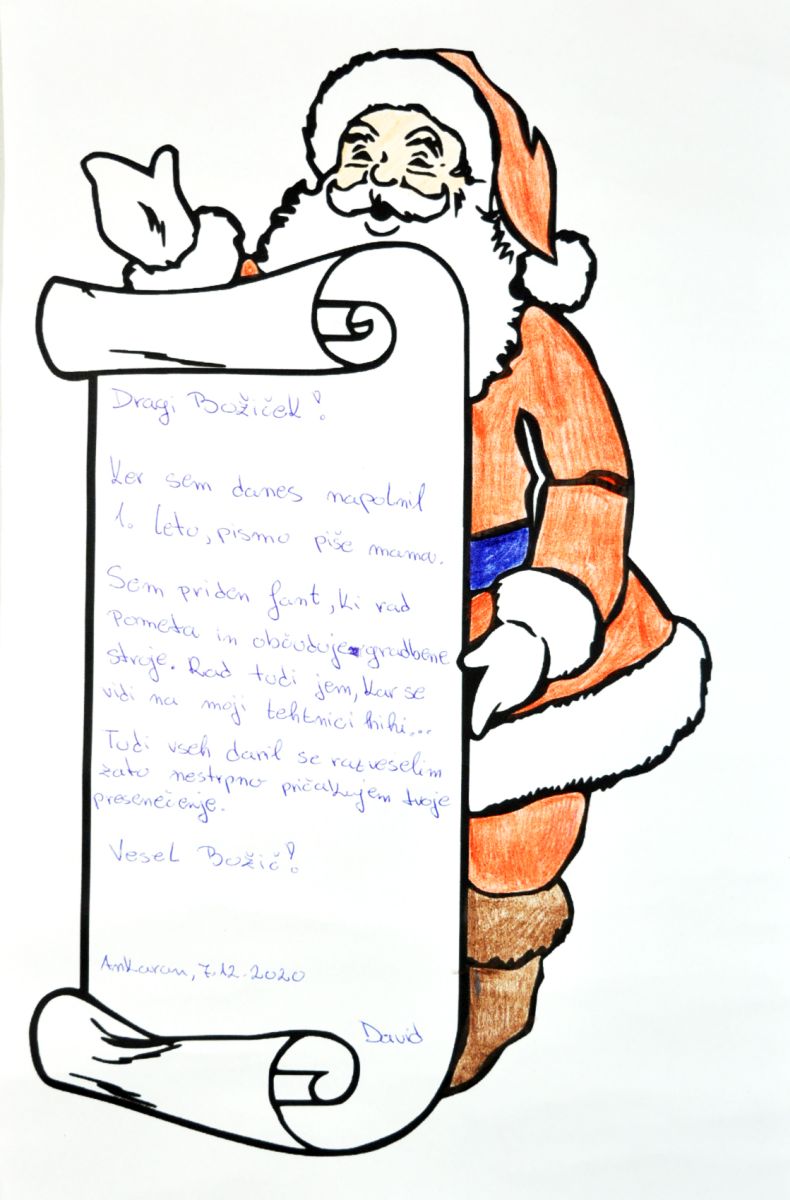 Dragi Božiček!
Ker sem danes napolnil
1. leto, pismo piše mama.
Sem priden fant, ki rad
pometa in občuduje gradbene
stroje. Rad tudi jem, kar se
vidi na moji tehtnici hihi...
Tudi vseh daril se razveselim
zato nestrpno pričakujem tvoje
presenečenje.
Vesel Božič!
Ankaran, 7.12.2020
David